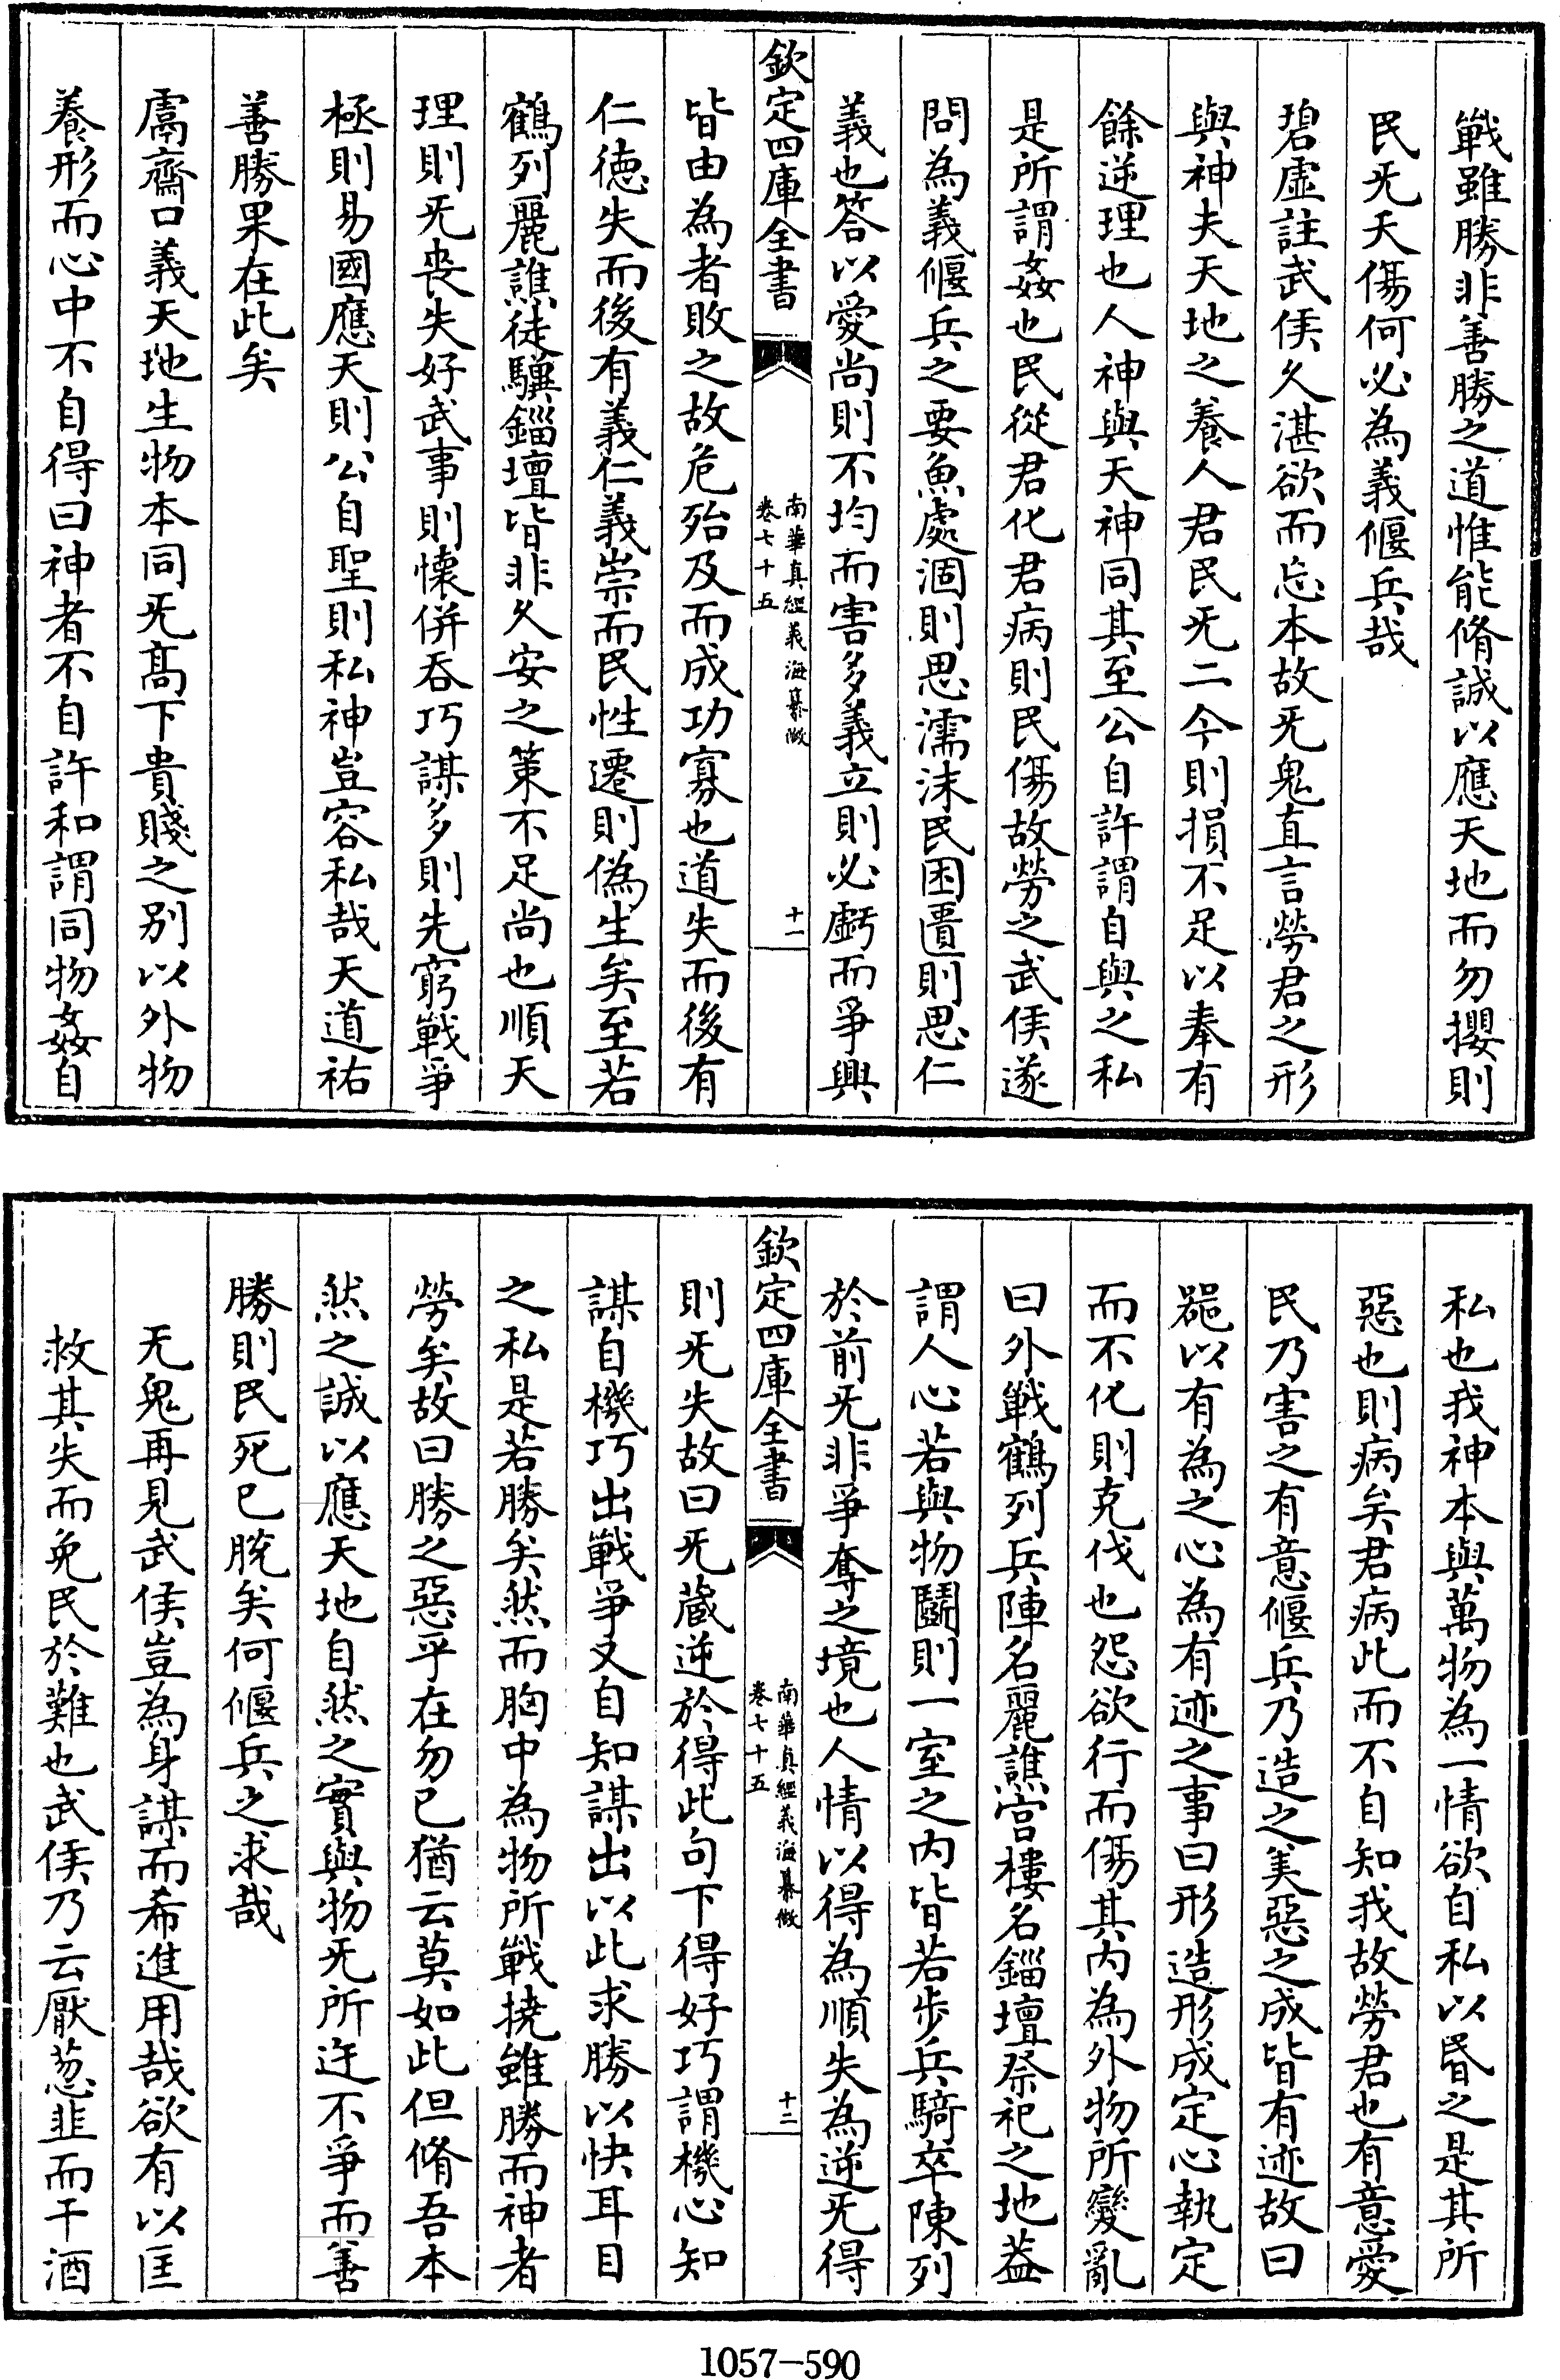 戰雖勝非善勝之道惟能脩誠以應天地而勿攖則
民旡夭傷何必為義偃兵哉
碧虛註武侯久湛欲而忘本故旡鬼直言勞君之形
與神夫天地之養人君民旡二今則損不足以奉有
餘逆理也人神與天神同其至公自許謂自與之私
是所謂姦也民從君化君病則民傷故勞之武侯遂
問為義偃兵之要魚處涸則思濡沫民困匱則思仁
義也答以愛尚則不均而害多義立則必虧而爭興
欽定四庫全書
南華真經義海纂微
卷七十五
十一
皆由為者敗之故危殆及而成功寡也道失而後有
仁德失而後有義仁義崇而民性遷則偽生矣至若
鶴列麗譙徒驥錙壇皆非久安之策不足尚也順天
理則旡喪失好武事則懷併吞巧謀多則先窮戰爭
極則易國應天則公自聖則私神豈容私哉天道祐
善勝果在此矣
鬳齋口義天地生物本同旡髙下貴賤之別以外物
養形而心中不自得曰神者不自許和謂同物姦自
私也我神本與萬物為一情欲自私以昬之是其所
惡也則病矣君病此而不自知我故勞君也有意愛
民乃害之有意偃兵乃造之美惡之成皆有迹故曰
噐以有為之心為有迹之事曰形造形成定心執定
而不化則克伐也怨欲行而傷其内為外物所變亂
曰外戰鶴列兵陣名麗譙宫樓名錙壇祭祀之地葢
謂人心若與物鬬則一室之内皆若步兵騎卒陳列
於前旡非爭奪之境也人情以得為順失為逆旡得
欽定四庫全書
南華真經義海纂微
卷七十五
十二
則旡失故曰旡藏逆於得此句下得好巧謂機心知
謀自機巧出戰爭又自知謀出以此求勝以快耳目
之私是若勝矣然而胸中為物所戰撓雖勝而神者
勞矣故曰勝之惡乎在勿已猶云莫如此但脩吾本
然之誠以應天地自然之實與物旡所迕不爭而善
勝則民死已脫矣何偃兵之求哉
无鬼再見武侯豈為身謀而希進用哉欲有以匡
救其失而免民於難也武侯乃云厭葱韭而干酒
1057-590